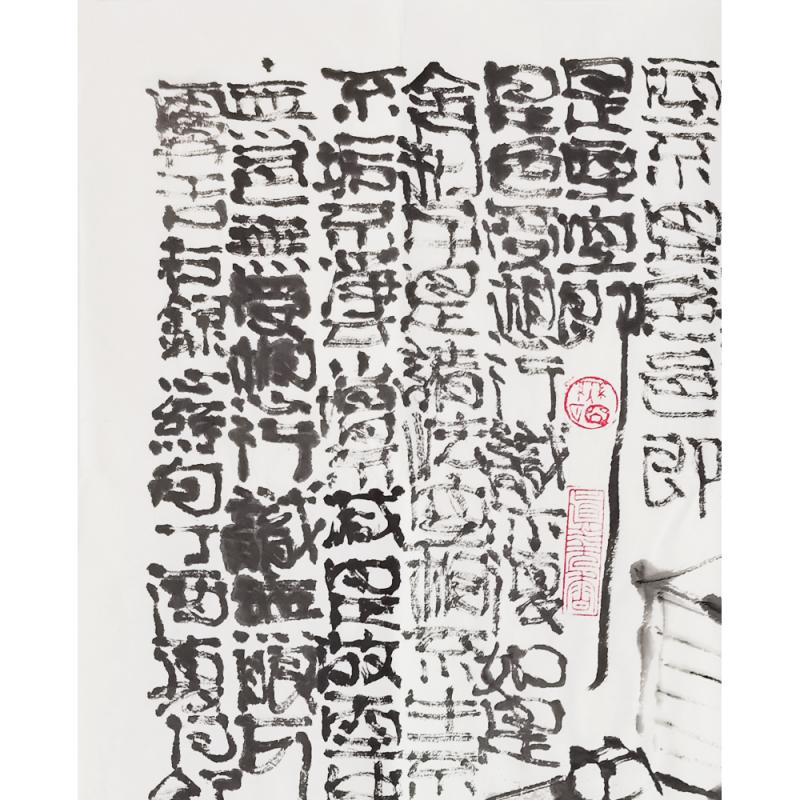 空不異色色即
是空空即
是色受想行識亦復如是
舍利子是諸法空相不生不
不垢不淨增不減是故空中
無色無受想行識無眼耳
右錄心經句丁酉